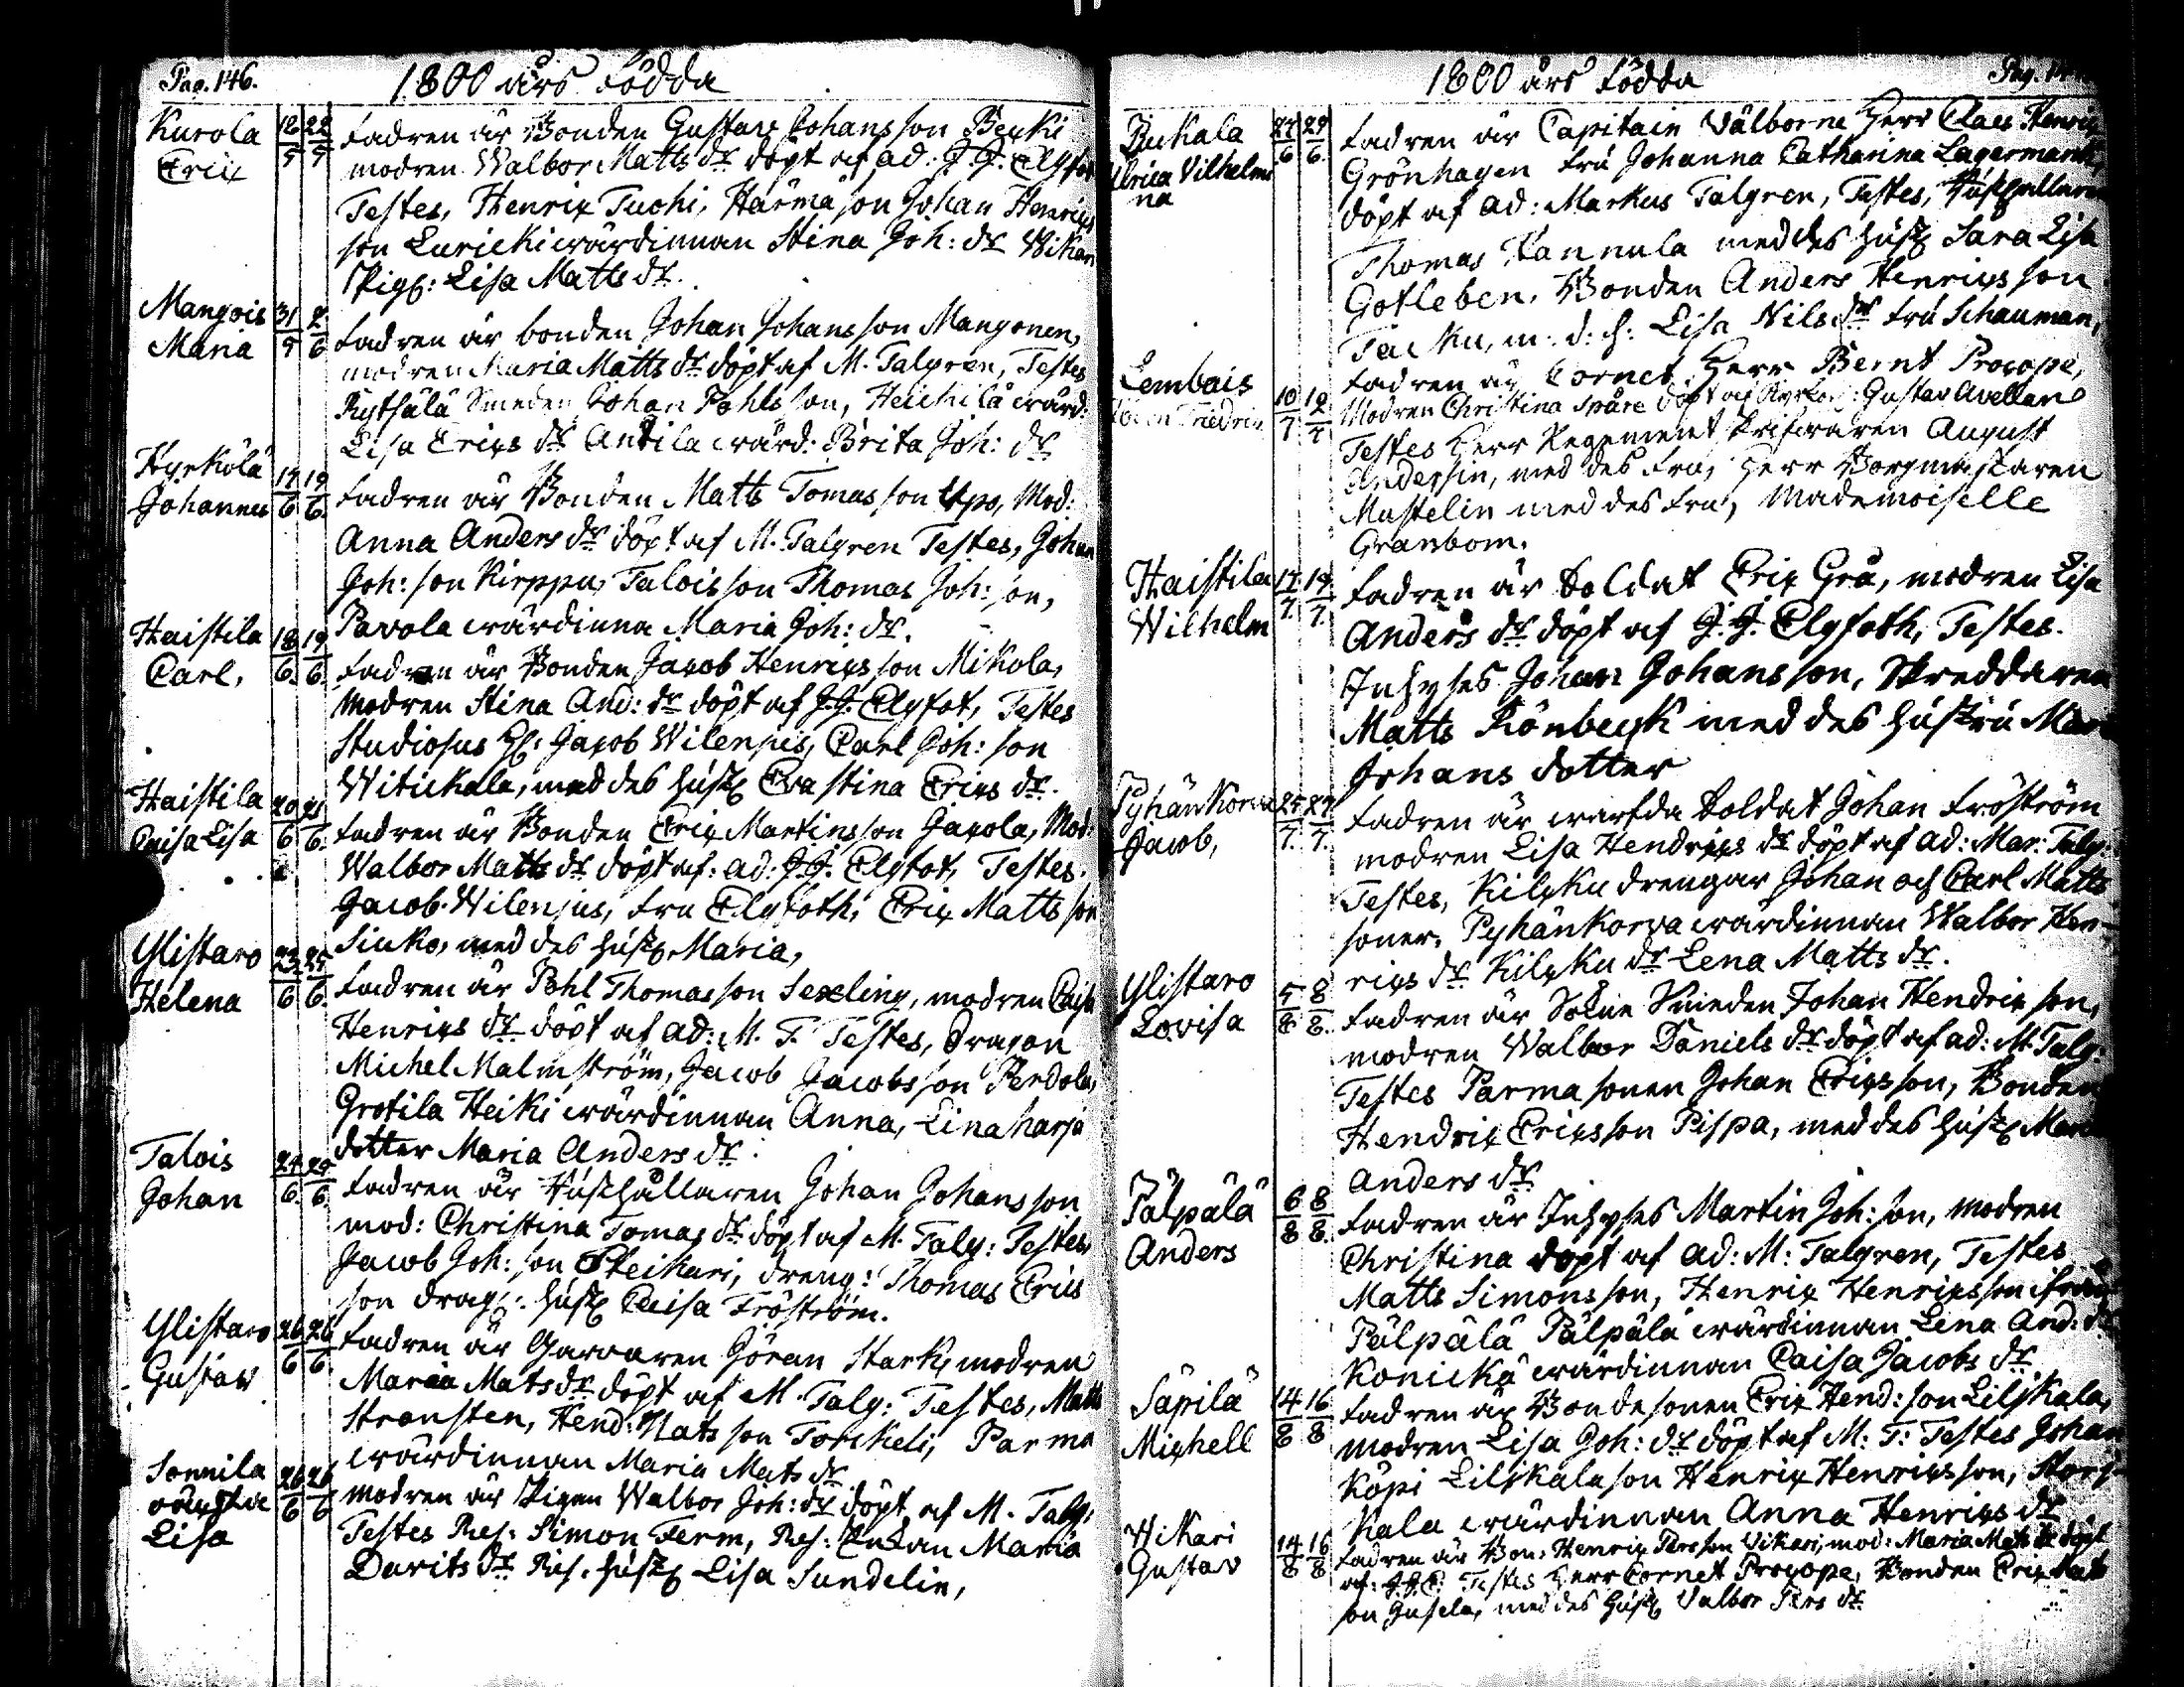 Pag. 146.
1800 års Födda
Kurola
Erix
18/5 22/5
Fadren är Bonden Gustav Johansson Beuki
modren Walbor Matts dr döpt af ad: J. J. Elgfot
Testes, Henrix Tuohi, Härmä son Johan Henrixs
son Lurieki wärdinnan Stina Joh: dr Wikari
Pig: Lisa Matts dr.
Mangois
Maria
31/5 2/6
Fadren är bonden Johan Johansson Mangonen,
modren Maria Matts dr döpt af M. Talgren, Testes
Kytsälä Smeden Johan Pohls son, Heickilä wärd:
Lisa Erixs dr Antila wärd: Brita Joh: dr
Hyrkölä
Johannes
17/6 19/6
Fadren är Bonden Matts Tomas son Upo, Mod:
Anna Anders dr döpt af M. Talgren Testes, Johan
Joh: son Kirppu, Talois son Thomas Joh: son,
Pavola wärdinna Maria Joh: dr.
Haistila
Carl,
18/6 19/6
Fadren är Bonden Jacob Henrixsson Mikola,
modren Stina And: dr döpt af J. J. Elgfot, Testes
Studiosus H: Jacob Wilenius, Carl Joh: son
Witickala, med des hust Eva Stina Erixs dr.
Haistila
Caisa Lisa
20/6 21/6
Fadren är Bonden Erix Martinsson Jaxola, Mod:
Walbor Matts dr döpt af: ad: J. J. Elgfot, Testes.
Jacob Wilenius, Fru Elgfoth, Erix Matts son
Siuko, med des hust Maria,
Ylistaro
Helena
23/6 25/6
Fadren är Pohl Thomasson Sexling, modren Caisa
Henrixs dr döpt af ad: M. T. Testes, Dragon
Michel Malmström, Jacob Jacobsson Perdola,
Grotila Heiki wärdinnan Anna, Linaharja
dotter Maria Anders dr.
Talois
Johan
24/6 29/6
Fadren är Hushållaren Johan Johansson
mod: Christina Tomas dr döpt af M. Talg: Testes,
Jacob Joh: son Pleikari, dreng: Thomas Erics
son drag: hust Caisa Fröström.
Ylistaro
Gustav
26/6 26/6
Fadren är Garvaren Göran Stark, modren
Maria Mats dr döpt af M. Talg: Testes, Matts
Stransten, Hend: Mats son Torckeli, Parma
wärdinnan Maria Mats dr
Sonnila
oäckta
Lisa
26/6 26/6
modren är Pigan Walbor Joh: dr döpt af M. Talg:
Testes Res: Simon Ferm, Res: Enkan Maria
Davits dr Res: hust Lisa Sundelin,
Pag. 14
1800 års Födda
Puckala
Ulrica Vilhelmi
na
24/6 29/6
Fadren är Capitain Välborne Herr Claes Henrix
Grönhagen Fru Johanna Catharina Lagermarck,
döpt af ad: Markus Talgren, Testes, Hushållaren
Thomas Kannula med des hust Sara Lisa
Gotleben, Bonden Anders Henrixs son
Tacku, m: d: h: Lisa Nils dr Fru Schauman,
Lembois
10/7 12/7
Fadren är Cornet Herr Bernt Procope,
Modren Christina Spåre döpt af Kyrkoh: Gustav Avellan
Testes Herr Regement Skrifvaren August
Andersin, med des Fru, Herr Borgmästaren
Mastelin med des Fru, Mademoiselle
Granbom.
Haistila
Wilhelm
17/7 19/7
Fadren är Soldat Erix Grå, modren Lisa
Anders dr döpt af J. J. Elgfoth, Testes.
Inhyses Johan Johansson, Skreddaren
Matts Rönbeck med des hustru Mar
Johans dotter
Pyhänkorva
Jacob,
25/7 27/7
Fadren är warfda Soldat Johan Fröström
modren Lisa Hendrixs dr döpt af ad: Mar: Talg:
Testes, Kilxku drengar Johan och Carl Matts
soner, Pyhänkorva wärdinnan Walbor Hen-
rixs dr Kilxku dr Lena Matts dr.
Ylistaro
Lovisa
5/8 8/8
Fadren är Sokne Smeden Johan Hendrix son,
modren Walbor Daniels dr döpt af ad: M. Talg:
Testes Parma sonen Johan Erixsson, Bonden
Hendrix Erixsson Pispa, med des hust Maria
Anders dr
Pälpälä
Anders
6/8 8/8
Fadren är Inhyses Martin Joh: son, modren
Christina döpt af ad: M: Talgren, Testes
Matts Simonsson, Henrix Henrixsson ifrån
Pälpälä Pälpälä wärdinnan Lena And: dr
Konickä wärdinnan Caisa Jacobs dr
Säpilä
Mixhell
14/8 16/8
Fadren är Bondesonen Erix Hend: son Liljkala,
modren Lisa Joh: dr döpt af M: T: Testes Johan
Köpi Liljkala son Henrix Henrixsson, Storj
Kala wärdinnan Anna Henrixs dr
Wikari
Gustav
14/8 16/8
Fadren är Bon: Henrix Persson Wikari, mod: Maria Mats dr döpt
af: J. J. E: Testes Herr Cornet Procope, Bonden Erix Mats
son Gusela, med des hust Valbor Pers dr